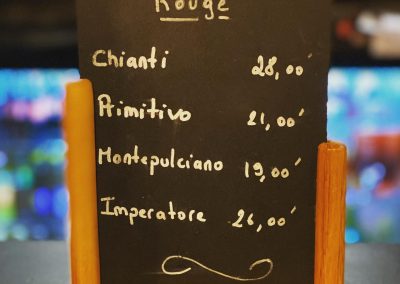 Rouge
Chianti 28,00
Primitivo 21,00
Montepulciano 19,00
Imperatore 26,00